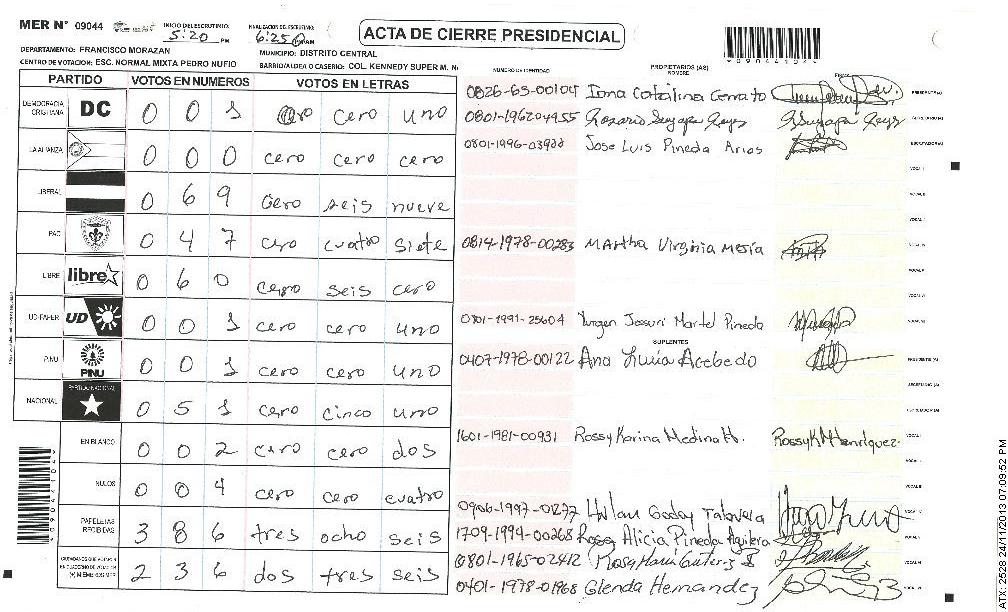 MER N° 09044
INICIO DEL ESCRUTINIO: 5:20 PM
FINALIZACION DEL ESCRUTINIO: 6:25
ACTA DE CIERRE PRESIDENCIAL
DEPARTAMENTO: FRANCISCO MORAZAN
MUNICIPIO: DISTRITO CENTRAL
CENTRO DE VOTACION: ESC. NORMAL MIXTA PEDRO NUFIO
BARRIO/ALDEA O CASERIO: COL. KENNEDY SUPER M. N
PARTIDO VOTOS EN NUMEROS VOTOS EN LETRAS
DEMOCRACIA CRISTIANA DC 0 0 1 cero cero uno
LA ALIANZA 0 0 0 cero cero cero
LIBERAL 0 6 9 cero seis nueve
PAC 0 4 7 cero cuatro siete
LIBRE libre 0 6 0 cero seis cero
UD-FAPER UD 0 0 1 cero cero uno
PINU PINU 0 0 1 cero cero uno
NACIONAL PARTIDO NACIONAL 0 5 1 cero cinco uno
EN BLANCO 0 0 2 cero cero dos
NULOS 0 0 4 cero cero cuatro
PAPELETAS RECIBIDAS 3 8 6 tres ocho seis
CIUDADANOS QUE VOTARON EN CUADERNO DE VOTACION (+) MIEMBROS MER 2 3 6 dos tres seis
NUMERO DE IDENTIDAD PROPIETARIOS (AS) NOMBRE
0826-65-00104 Irma Catalina Cerrato PRESIDENTE (A)
0801-196204455 Rosario Suyapa Reyes
0801-1996-03988 Jose Luis Pineda Arias ESCRUTADOR (A)
0814-1978-00283 Martha Virginia Mejía
0801-1991-25604 Yurgen Josuri Martel Pineda
SUPLENTES
0407-1978-00122 Ana Lucia Acebedo PRESIDENTE (A)
SECRETARIO (A)
ESCRUTADOR (A)
1601-1981-00931 Rossy Karina Medina H. RossyKMHenriquez
0906-1997-01277 Godoy Talavera
1709-1994-00268 Rosa Alicia Pineda Aguilera
0801-1965-02412
0401-1978-01968 Glenda Hernandez
*09044104*
ATX-2528 24/11/2013 07:09:52 PM